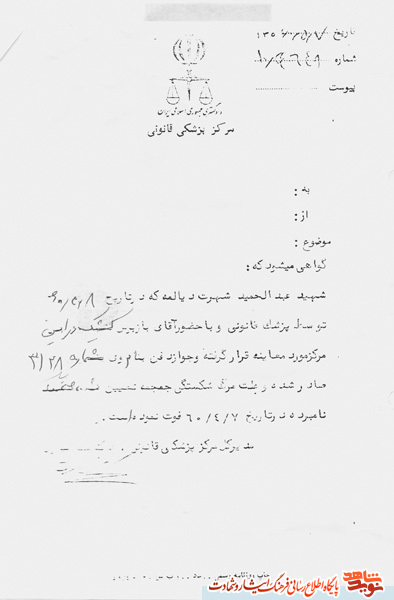 تاریخ
شماره
پیوست
دادگستری جمهوری اسلامی ایران
مرکز پزشکی قانونی
به :
از :
موضوع :
گواهی میشود که :
شهید عبدالحمید شهرت دیالمه که در تاریخ ۶۰/۴/۸
توسط پزشک قانونی و با حضور آقای بازپرس کشیک در این
مرکز مورد معاینه قرار گرفته و جواز دفن بنام وی شماره
صادر شده و علت مرگ شکستگی جمجمه تعیین شده
نامبرده در تاریخ ۶۰/۴/۷ فوت نموده است .
مدیرکل مرکز پزشکی قانونی
نوید شاهد
پایگاه اطلاع رسانی فرهنگ ایثار و شهادت